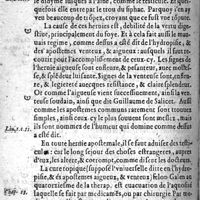 le didyme iusques à l'aine, comme le testicule. Et quel-
beaucoup de trôper, croyant que ce fust vne
La cause de ces hernies est, debilité de la vertu dige-
stiue, principalement du foye. Et à cela fait aussi le mau-
uais regime, comme dessus a esté dit de l'hydropisie, &
des apostemes venteux, & aigueux: ausquels il faut re-
courir pour l'accomplissement de ceux-cy. Les signes de
l'hernie aigueuse sont, pesanteur & pendement, auec mol-
lesse, & splédeur luisante. Signes de la venteuse sont, enfle-
& engrossir auecques resistance, & claire splendeur.
Or comme l'aigueuse vient successiuement, ainsi la ven-
teuse soudain, ainsi que dit Guillaume de Salicet. Aussi
comme les apostemes communs retardent plus que
les autres, ainsi ceux-cy le plus souuent sont meslez, mais
ils sont nommez de l'humeur qui domine comme dessus
a esté dit.
En toute hernie apostemale, il se faut aduiser des testi-
cules: car le long sejour des choses estrangeres, apres
d'eux, les altere, & corrompt, comme disent les docteurs.
La cure topique (supposé l'vniuerselle dite en l'hydro-
pisie, & apostemes venteux, & aigueux) selon Galen au
quatorziesme de la therap. est euacuation de l'aquosité
laquelle se fait par medicamés, ou par chirurgie. Par me-